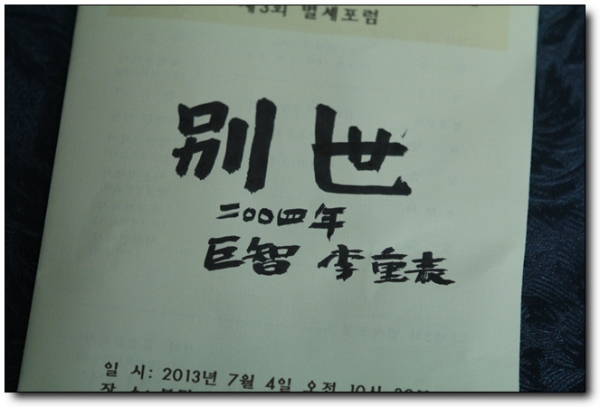 제3회 별세포럼
別世
二〇〇四年
巨智 李重表
일 시: 2013년 7월 4일 오전 10시
장 소: